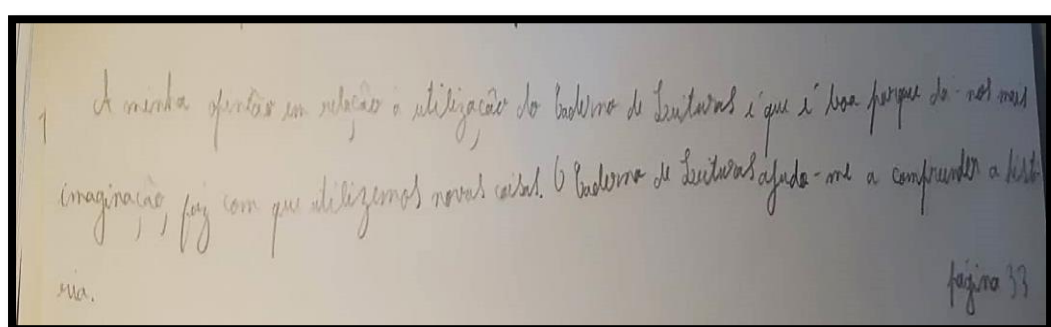 1 A minha opinião em relação à utilização do Caderno de Leituras é que é boa porque dá-nos mais
imaginação, faz com que utilizemos novas coisas. O Caderno de Leituras ajuda-me a compreender a histó
ria.
página 33